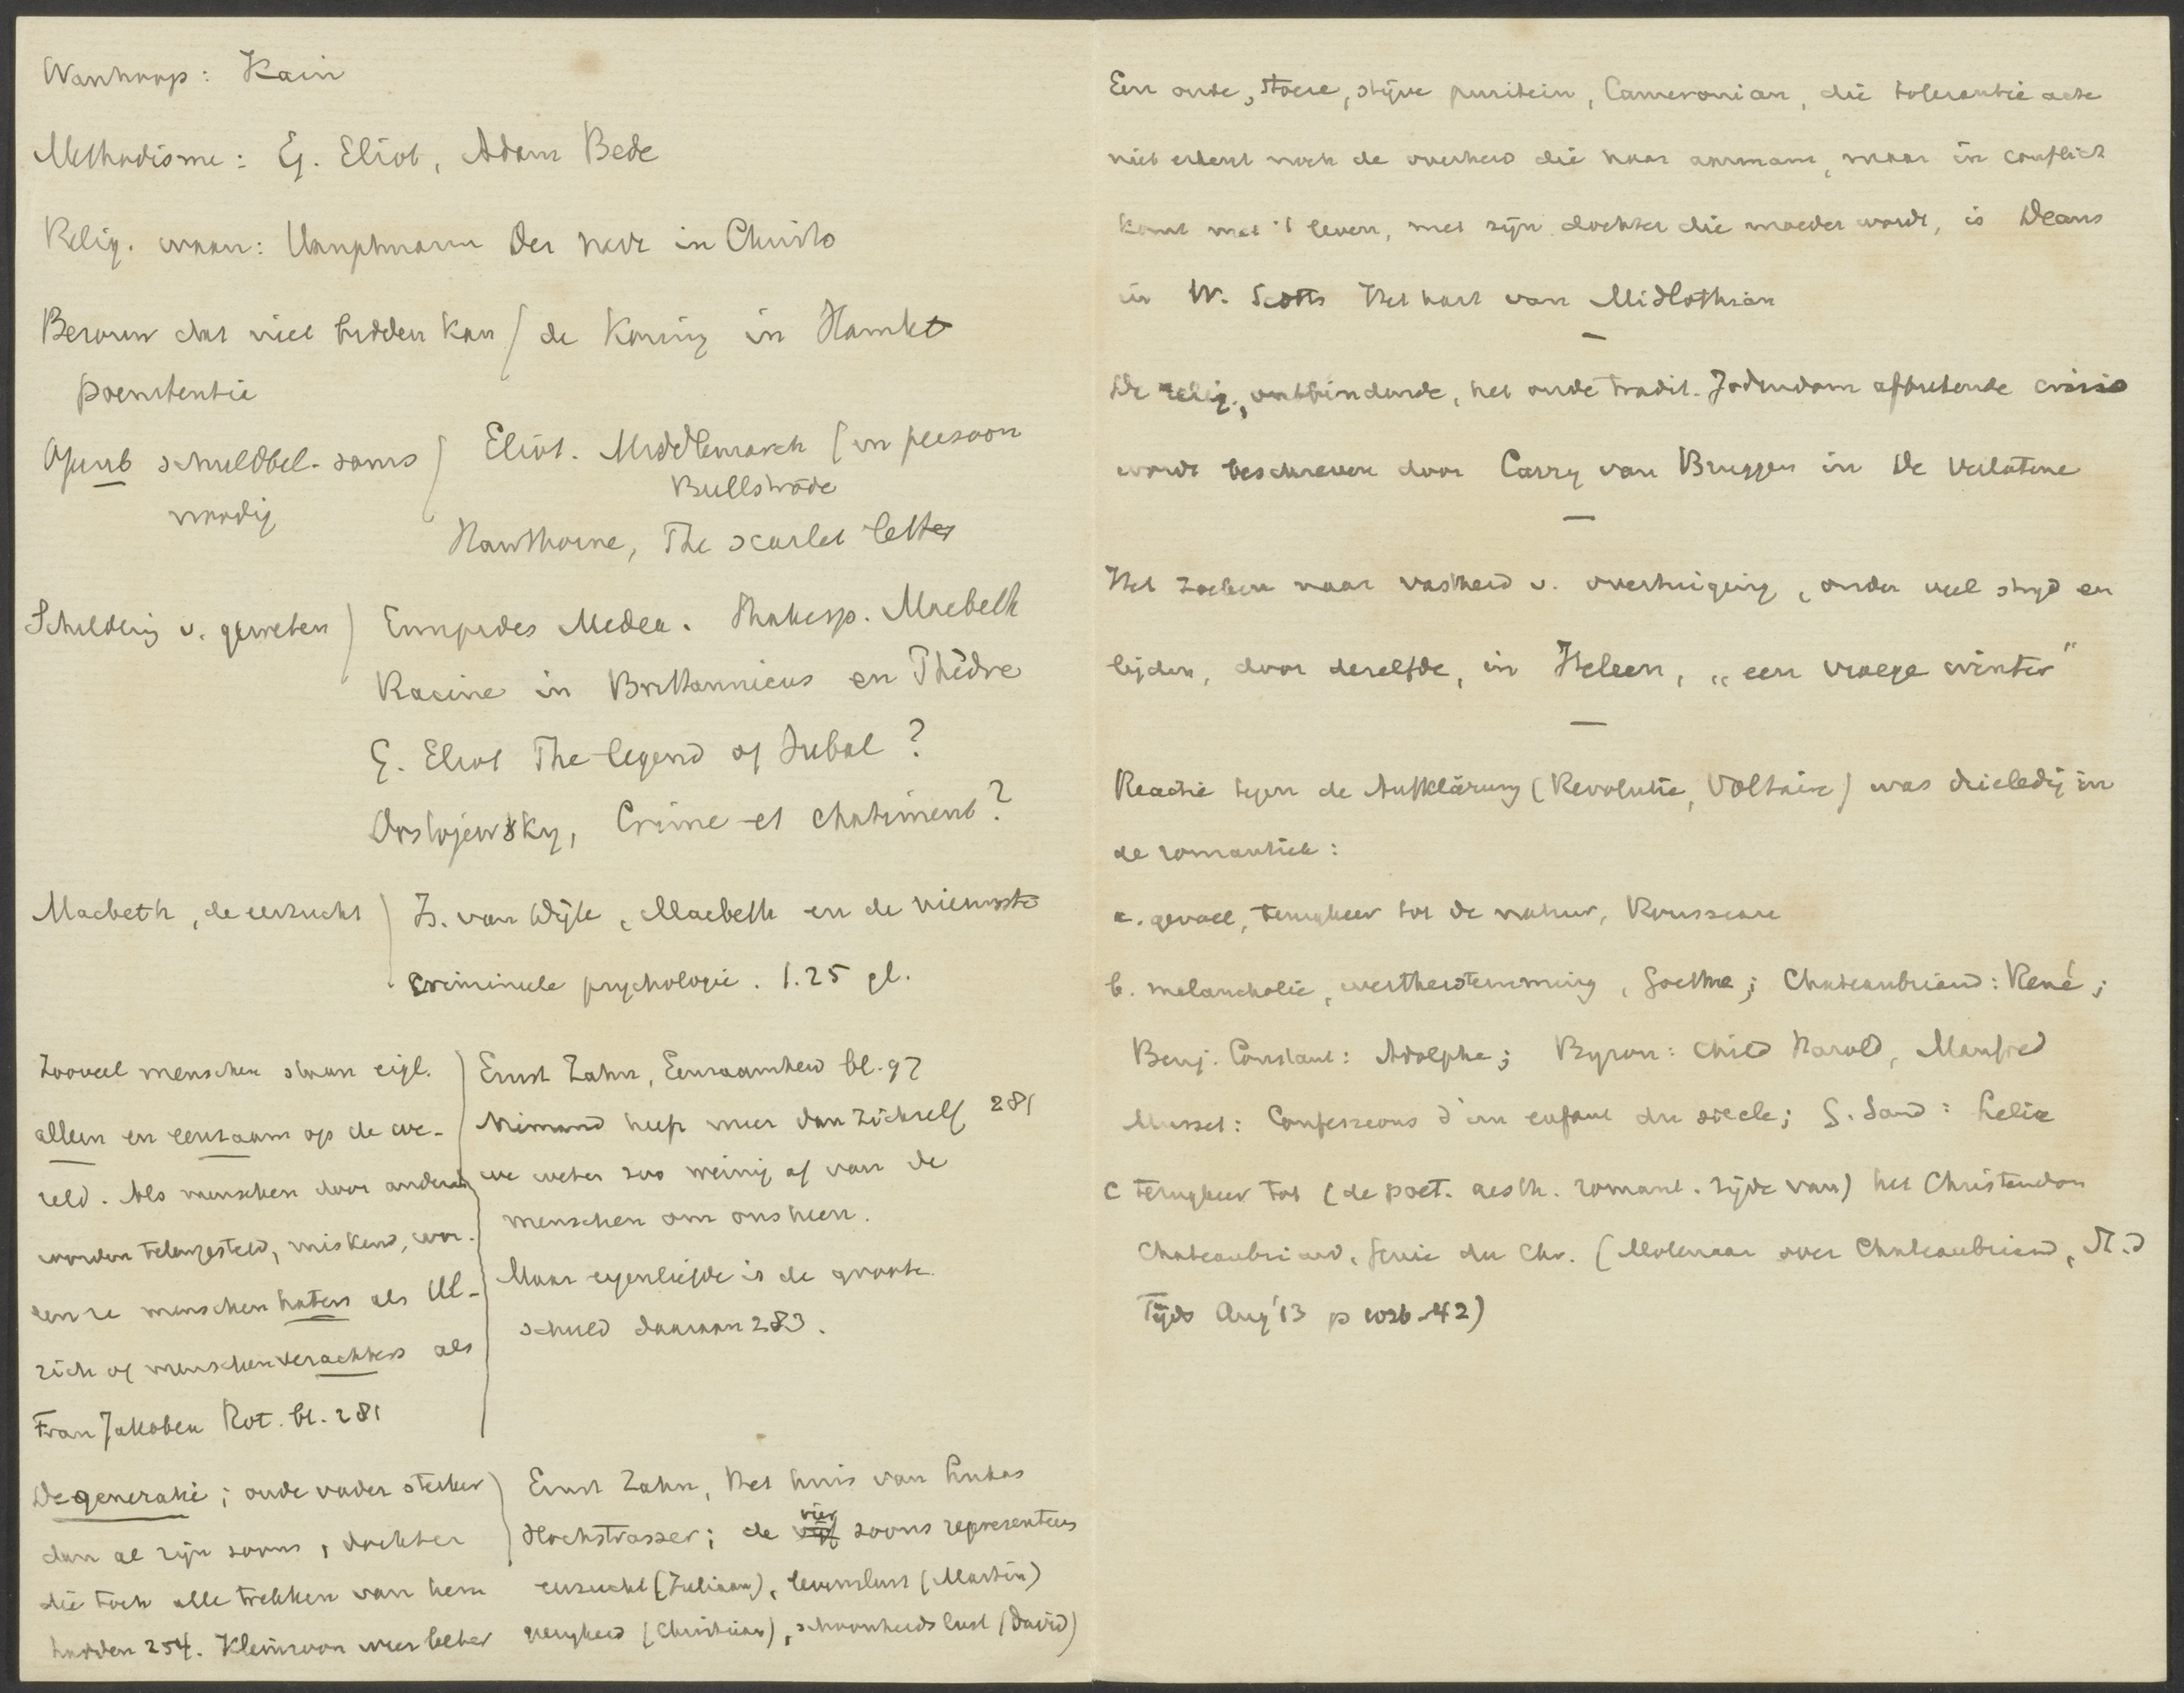 Wanhoop: Kain
Methodisme: G. Eliot, Adam Bede
Relig. waan: Hauptmann Der narr in Christo
Berouw dat niet bidden kan / de Koning in Hamlet
poenitentie
Openb schuldbel. soms
noodig
Eliot. Middlemarch (in persoon
Bullstrode
Hawthorne, The scarlet letter
Schildering v. geweten) Euripides Medea. Shakesp. Macbeth
Racine in Britannicus en Phèdre
G. Eliot The legend of Jubal?
Dostojewsky, Crime et chatiment?
Macbeth, de eerzucht) Is. van Wijk, Macbeth en de nieuwste
crimineele psychologie. 1.25 gl.
Zooveel menschen staan eigl.
alleen en eenzaam op de we-
reld. Als menschen door anderen
worden teleurgesteld, miskend, wor-
den ze menschenhaters als Ul-
rich of menschenverachters als
Frau Jakobea Rot. bl. 281
Ernst Zahn, Eenzaamheid bl. 97
Niemand heeft meer dan zichzelf 281
we weten zoo weinig af van de
menschen om ons heen.
Maar eigenliefde is de grootste
schuld daaraan 283.
Degeneratie; oude vader sterker
dan al zijn zoons, dochter
die toch alle trekken van hem
hadden 254. Kleinzoon weer beter
Ernst Zahn, Het huis van Lukas
Hochstrasser; de vier zoons representeeren
eerzucht (Juliaan), levenslust (Martin)
gierigheid (Christiaan), schoonheidslust (David)
Een oude, stoere, stijve puritein, Cameronian, die tolerantie acte
niet erkent noch de overheid die haar aannam, maar in conflict
komt met 't leven, met zijn dochter die moeder wordt, is Deans
in W. Scotts Het hart van Midlothian
De relig., ontbindende, het oude tradit. Jodendom aftastende crisis
wordt beschreven door Carry van Bruggen in De Verlatene
Het zoeken naar vastheid v. overtuiging, onder veel strijd en
lijden, door dezelfde, in Heleen, „een vroege winter"
Reactie tegen de Aufklärung (Revolutie, Voltaire) was drieledig in
de romantiek:
a. gevoel, terugkeer tot de natuur, Rousseau
b. melancholie, wertherstemming, Goethe; Chateaubriand: René;
Benj. Constant: Adolphe; Byron: Child Harold, Manfred
Musset: Confessions d'un enfant du siecle; G. Sand: Lelia
c terugkeer tot (de poet. aesth. romant. zijde van) het Christendom
Chateaubriand, Genie du Chr. (Molenaar over Chateaubriand,
Tijds Aug '13 p 1026-42)